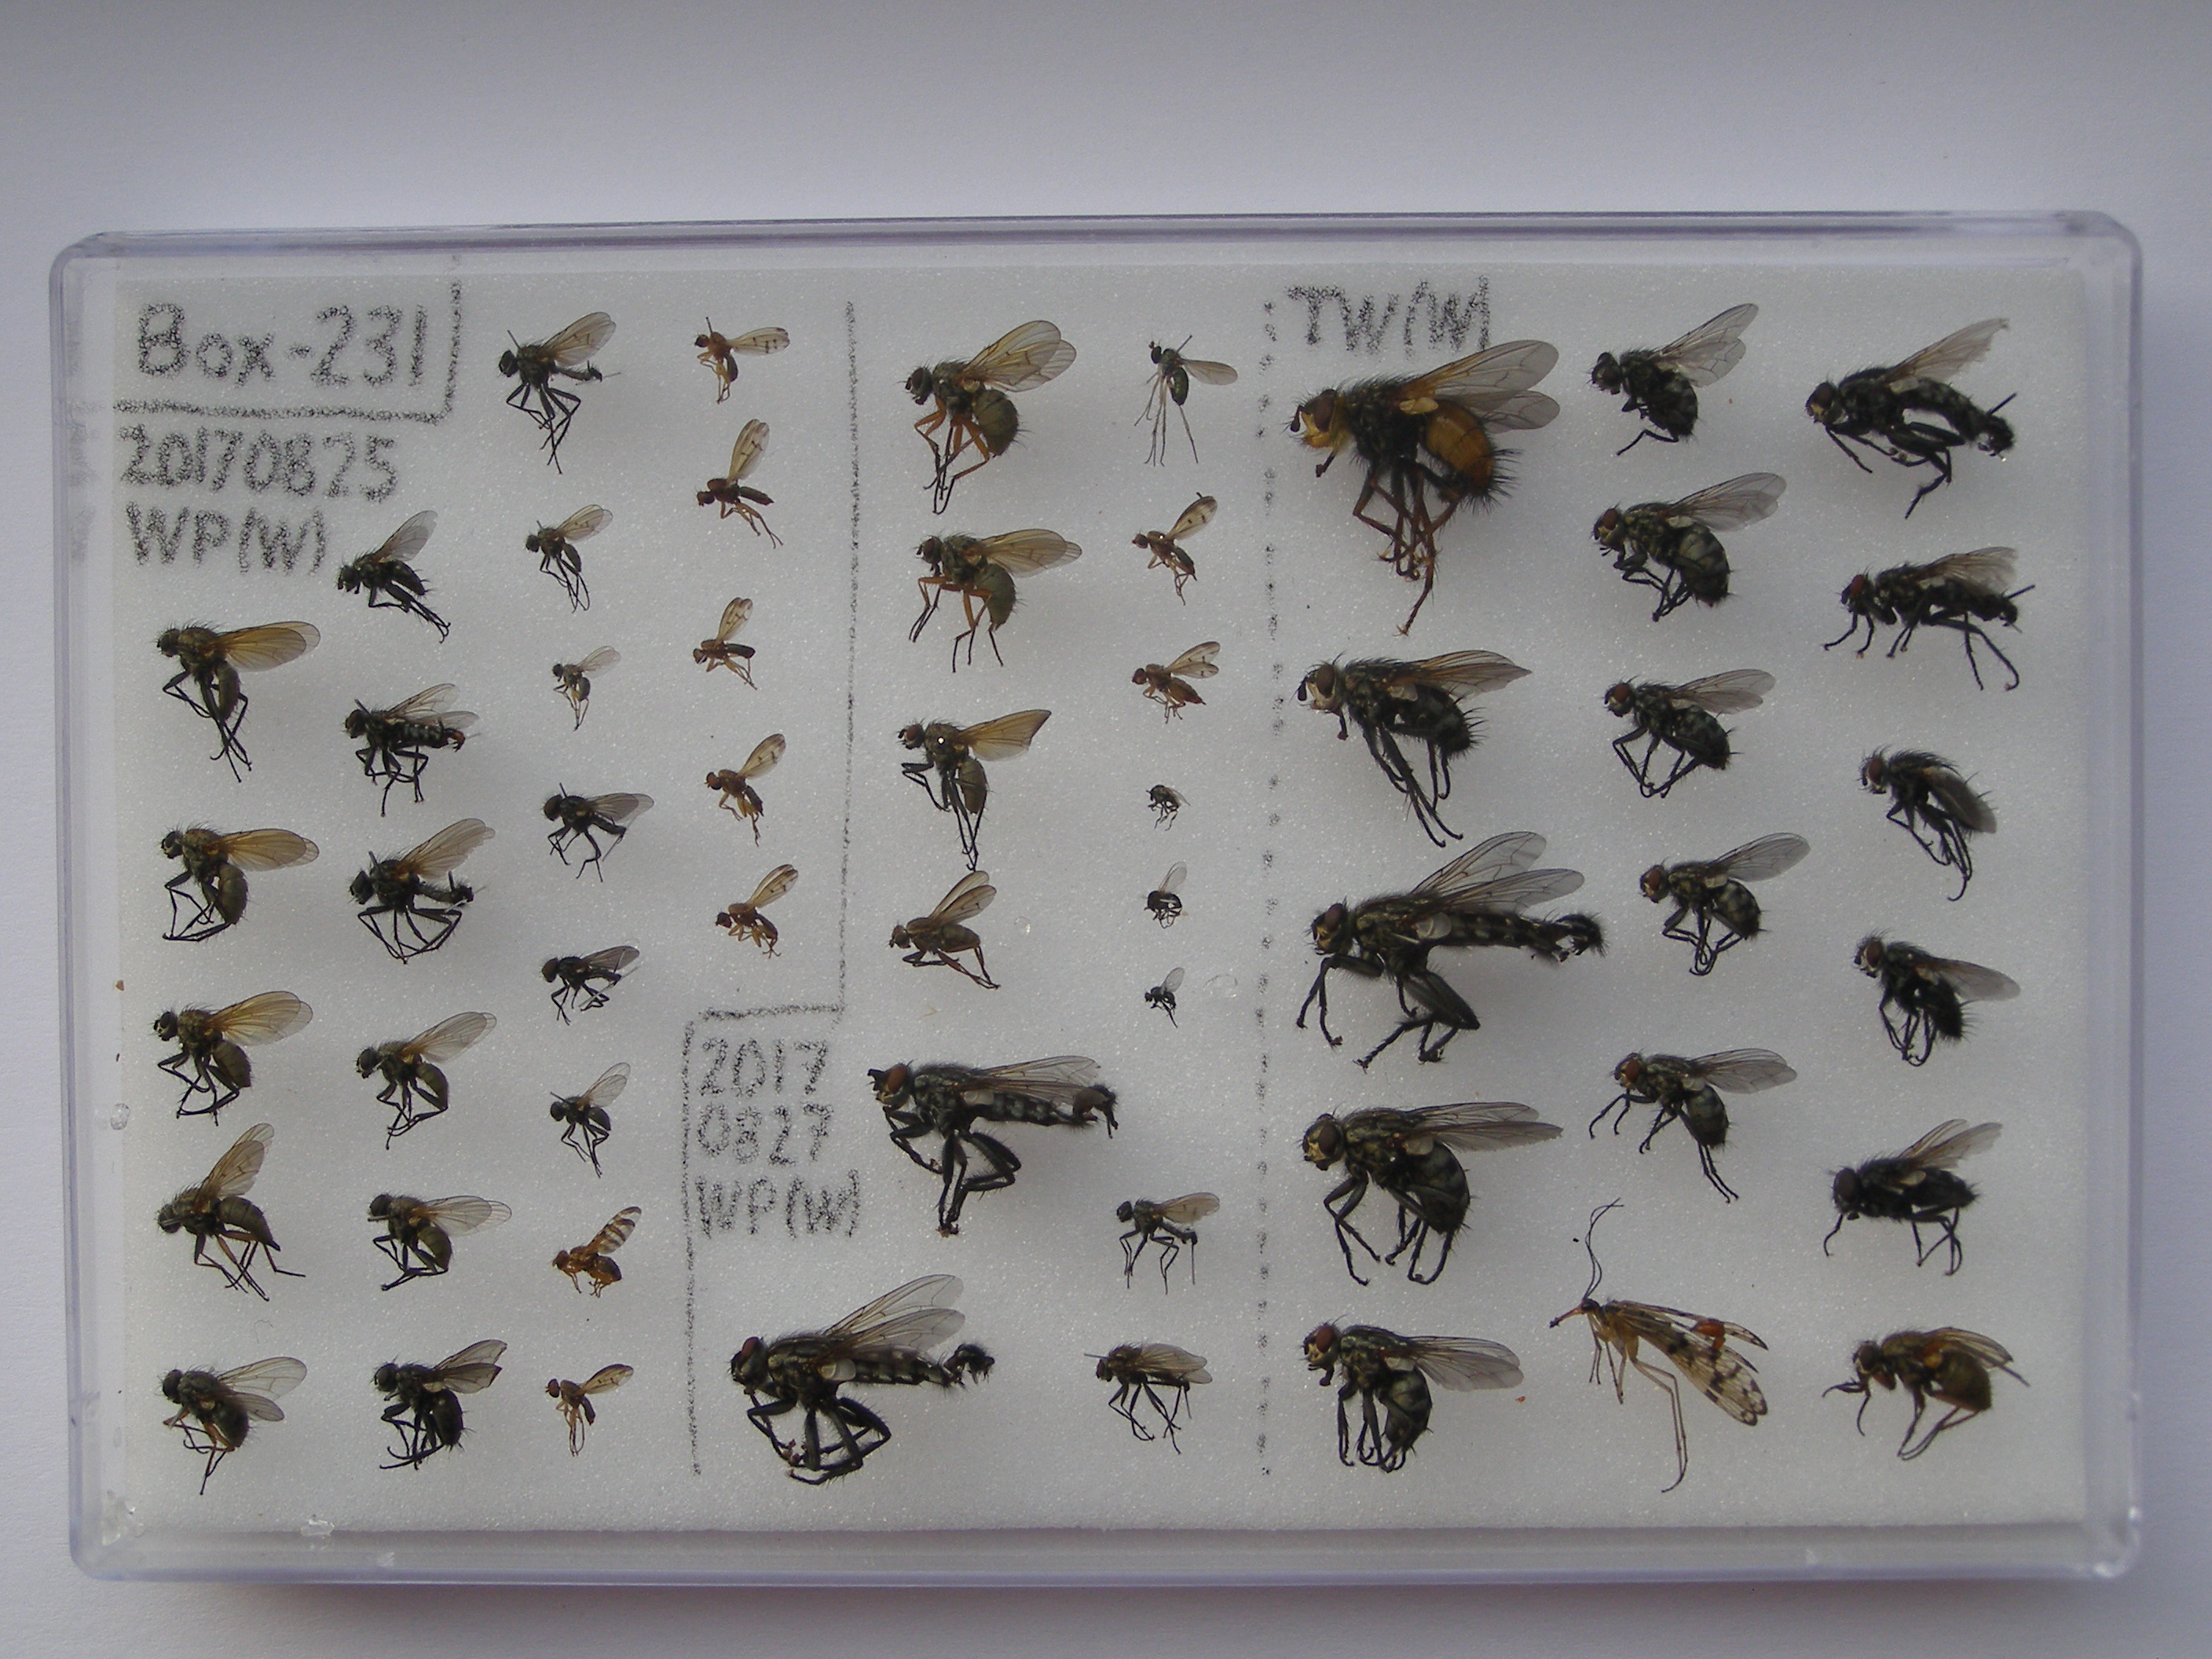 Box-231
20170825
WP(W)
2017
0827
WP(W)
TW(W)